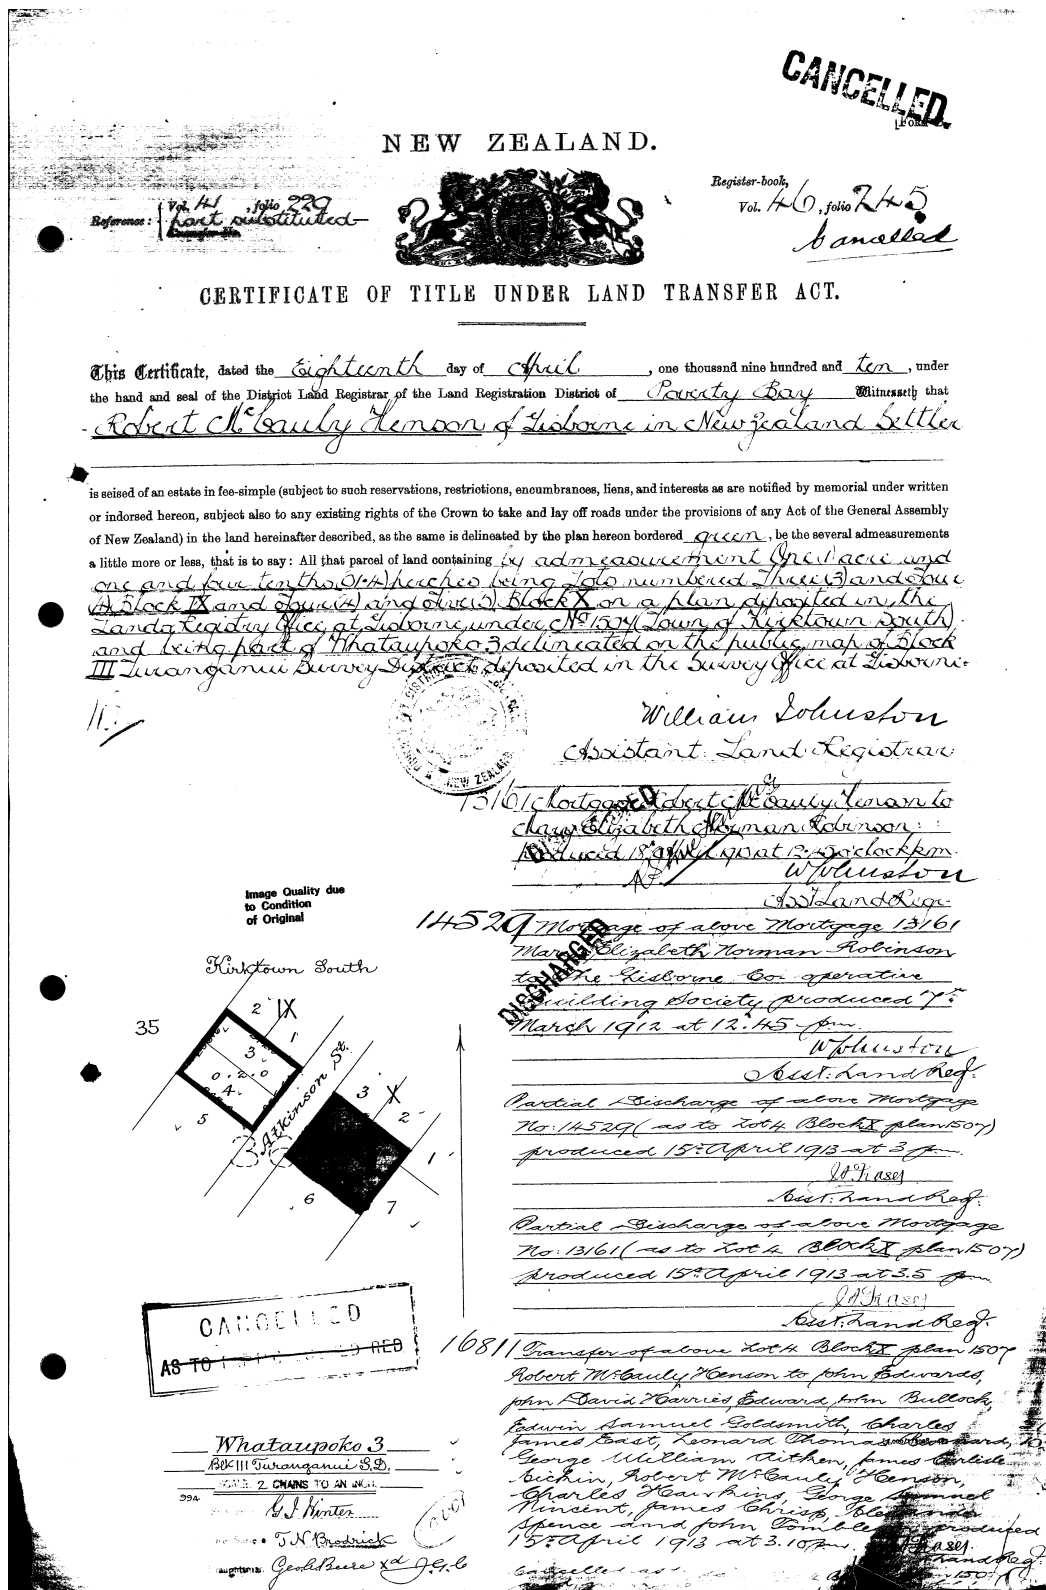 CANCELLED.
NEW ZEALAND.
Register-book,
Vol. 46, folio 245
Cancelled
Reference: Vol. 41, folio 229
part substituted
CERTIFICATE OF TITLE UNDER LAND TRANSFER ACT.
This Certificate, dated the Eighteenth day of April, one thousand nine hundred and ten, under
the hand and seal of the District Land Registrar of the Land Registration District of Poverty Bay Witnesseth that
Robert McCauly Henson of Gisborne in New Zealand Settler
is seised of an estate in fee-simple (subject to such reservations, restrictions, encumbrances, liens, and interests as are notified by memorial under written
or indorsed hereon, subject also to any existing rights of the Crown to take and lay off roads under the provisions of any Act of the General Assembly
of New Zealand) in the land hereinafter described, as the same is delineated by the plan hereon bordered green, be the several admeasurements
a little more or less, that is to say: All that parcel of land containing by admeasurement One 1 acre and
one and four tenths (01·4) perches being Lots numbered Three (3) and Four
(4) Block IX and Four (4) and Five (5) Block X on a plan deposited in the
Lands Registry Office at Gisborne under No 1507 (Town of Kirktown South)
and being part of Whataupoko 3 delineated on the public map of Block
III Turanganui Survey District deposited in the Survey Office at Gisborne
William Johnston
Assistant Land Registrar
NEW ZEALAND
13161 Mortgage Robert McCauly Henson to
Mary Elizabeth Norman Robinson
produced 18 April 1910 at 12.45 o'clock p.m.
W Johnston
Asst Land Regr.
DISCHARGED
Image Quality due
to Condition
of Original
14529 Mortgage of above Mortgage 13161
Mary Elizabeth Norman Robinson
to The Gisborne Co-operative
Building Society produced 7th
March 1912 at 12.45 pm
W Johnston
Asst. Land Reg.
DISCHARGED
Partial Discharge of above Mortgage
No: 14529 (as to Lot 4 Block X plan 1507)
produced 15th April 1913 at 3 pm.
Asst. Land Reg.
Partial Discharge of above Mortgage
No: 13161 (as to Lot 4 Block X plan 1507)
produced 15th April 1913 at 3.5 pm
Asst. Land Reg.
16811 Transfer of above Lot 4 Block X plan 1507
Robert McCauly Henson to John Edwards,
John David Harries, Edward John Bullock,
Edwin Samuel Goldsmith, Charles
James East, Leonard Thomas
George William Aitken, James Carlisle
Aickin, Robert McCauly Henson,
Charles Hawkins, George Samuel
Vincent, James Chrisp,
Spence and John produced
15th April 1913 at 3.10 pm.
Land Reg.
Kirktown South
35
2 IX
1
3
0.2.0
4
5
Atkinson St.
3 X
2
1
6
7
CANCELLED
AS TO RED
Whataupoko 3
Blk III Turanganui S.D.
2 CHAINS TO AN INCH
G.J. Winter
T.N. Brodrick
Geo. H. Beere